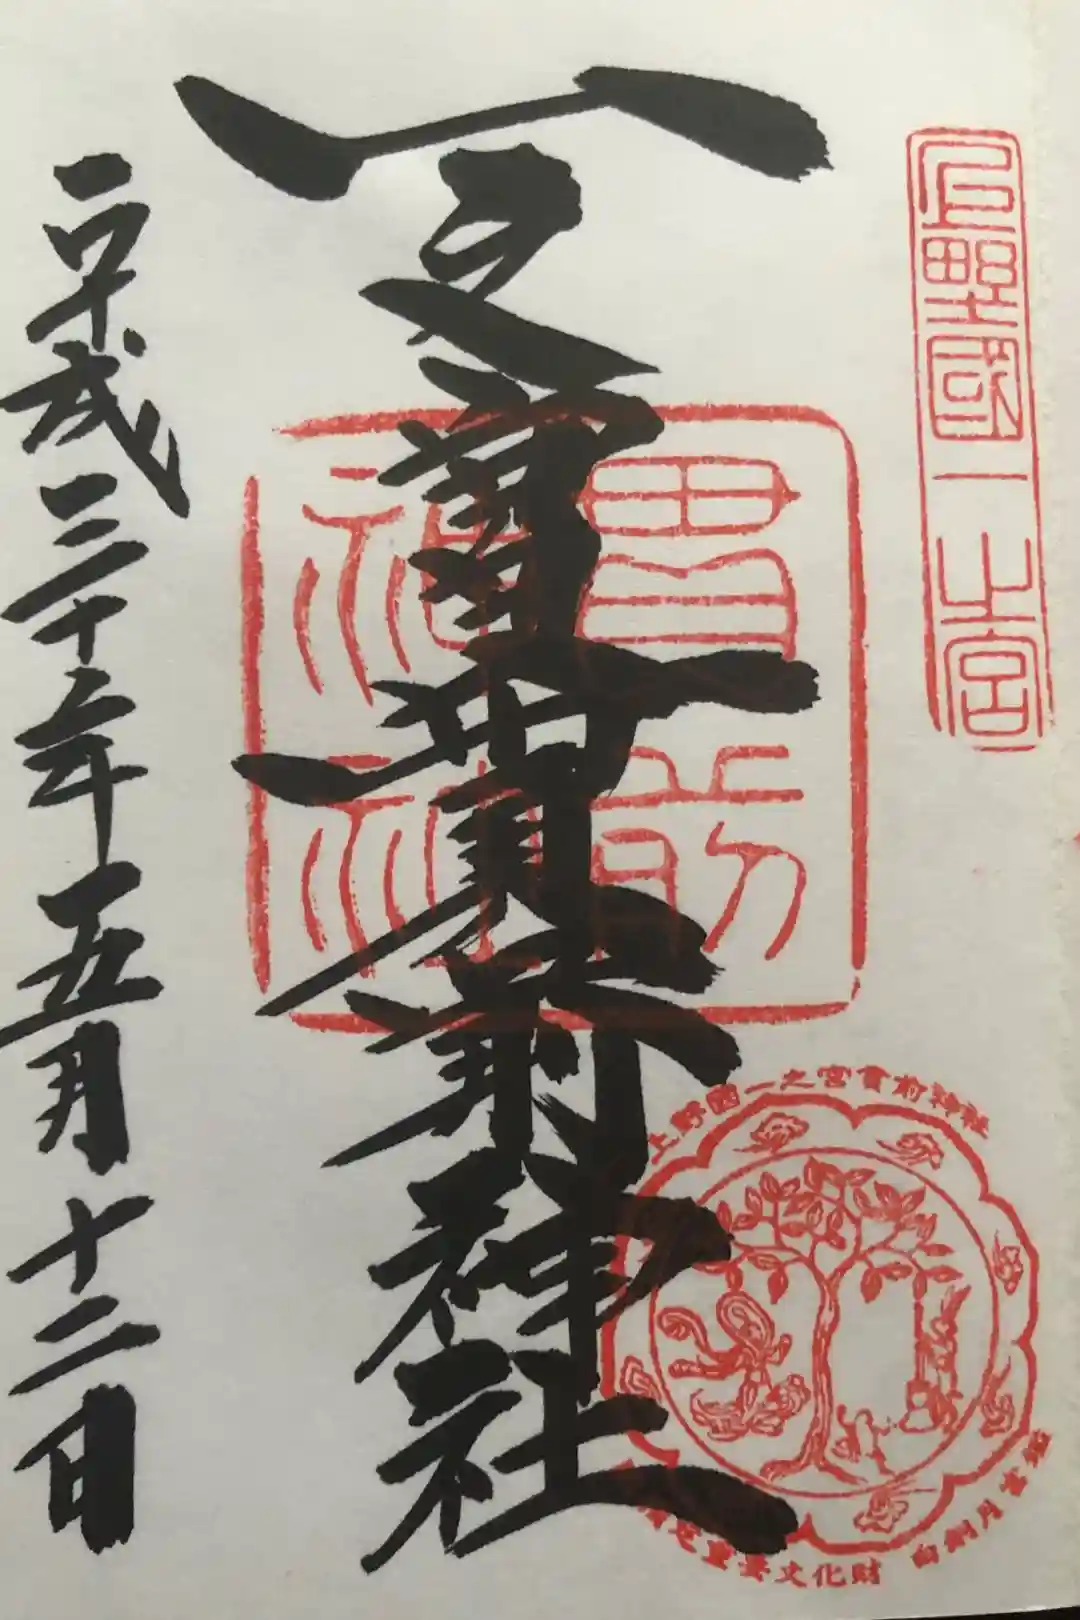 上野國一之宮
一之宮貫前神社
平成三十年五月十二日
貫前
神社
上野國一之宮貫前神社
指定重要文化財 白銅月宮鑑